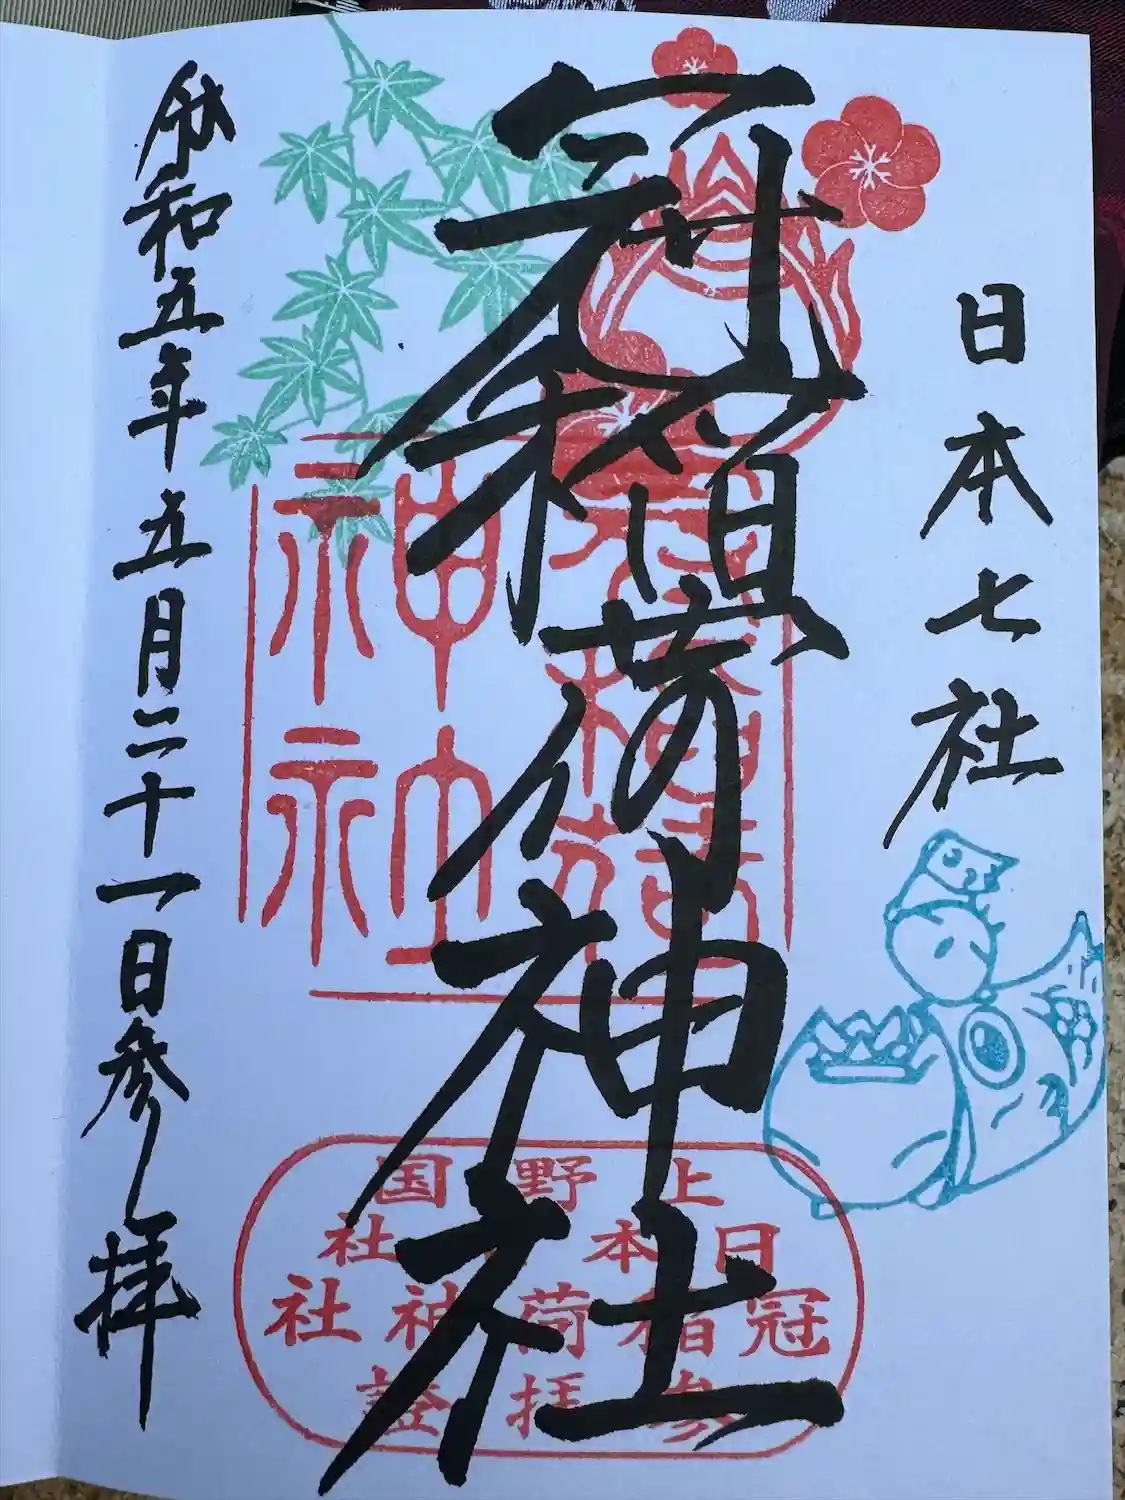 日本七社
冠稲荷神社
令和五年五月二十一日参拝
冠稲荷神社
上野国
日本七社
冠稲荷神社
参拝證